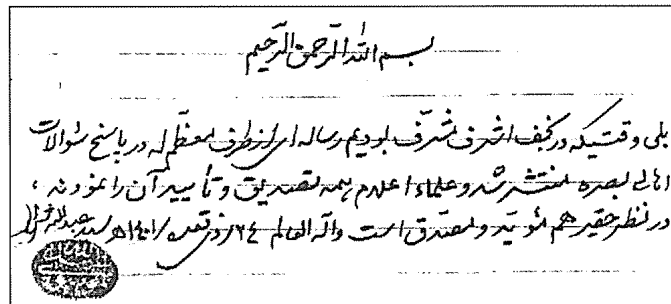 بسم الله الرحمن الرحیم
بلی وقتیکه در نجف اشرف مشرّف بودیم رساله ای از طرف معظّم له در پاسخ سئوالات
اهالی بصره منتشر شد و علماء اعلام همه تصدیق و تأیید آن را نمودند ،
در نظر حقیر هم مؤیّد و مصدّق است والله العالم ٢٤ ذی قعده /١٤٠١ هـ سید عبدالله